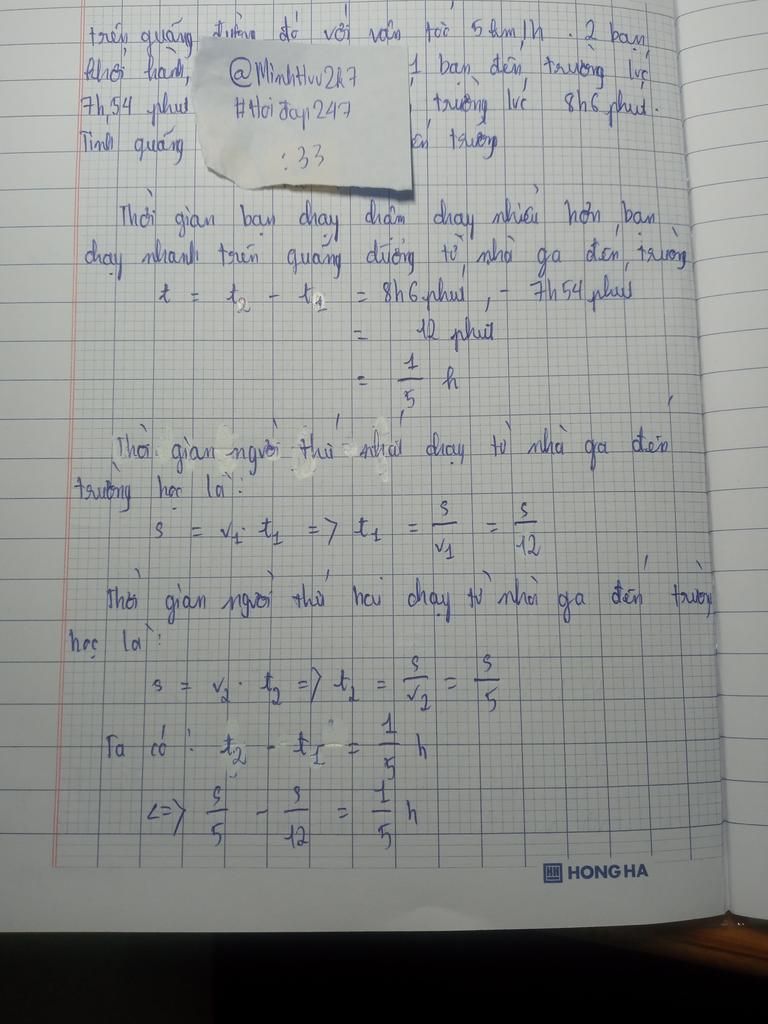 trên quãng đường đó với vận tốc 5 km/h. 2 bạn
khởi hành, 1 bạn đến trường lúc
7h,54 phút trường lúc 8h6 phút.
Tính quãng trường
@MinhHuu2k7
#Hoidap247
:33
Thời gian bạn chạy chậm chạy nhiều hơn bạn
chạy nhanh trên quãng đường từ nhà ga đến trường
t = t2 - t1 = 8h6 phút, - 7h54 phút
= 12 phút
= 1/5 h
Thời gian người thứ nhất chạy từ nhà ga đến
trường học là:
s = v1 . t1 => t1 = s/v1 = s/12
Thời gian người thứ hai chạy từ nhà ga đến trường
học là:
s = v2 . t2 => t2 = s/v2 = s/5
Ta có: t2 - t1 = 1/5 h
<=> s/5 - s/12 = 1/5 h
HH HONG HA